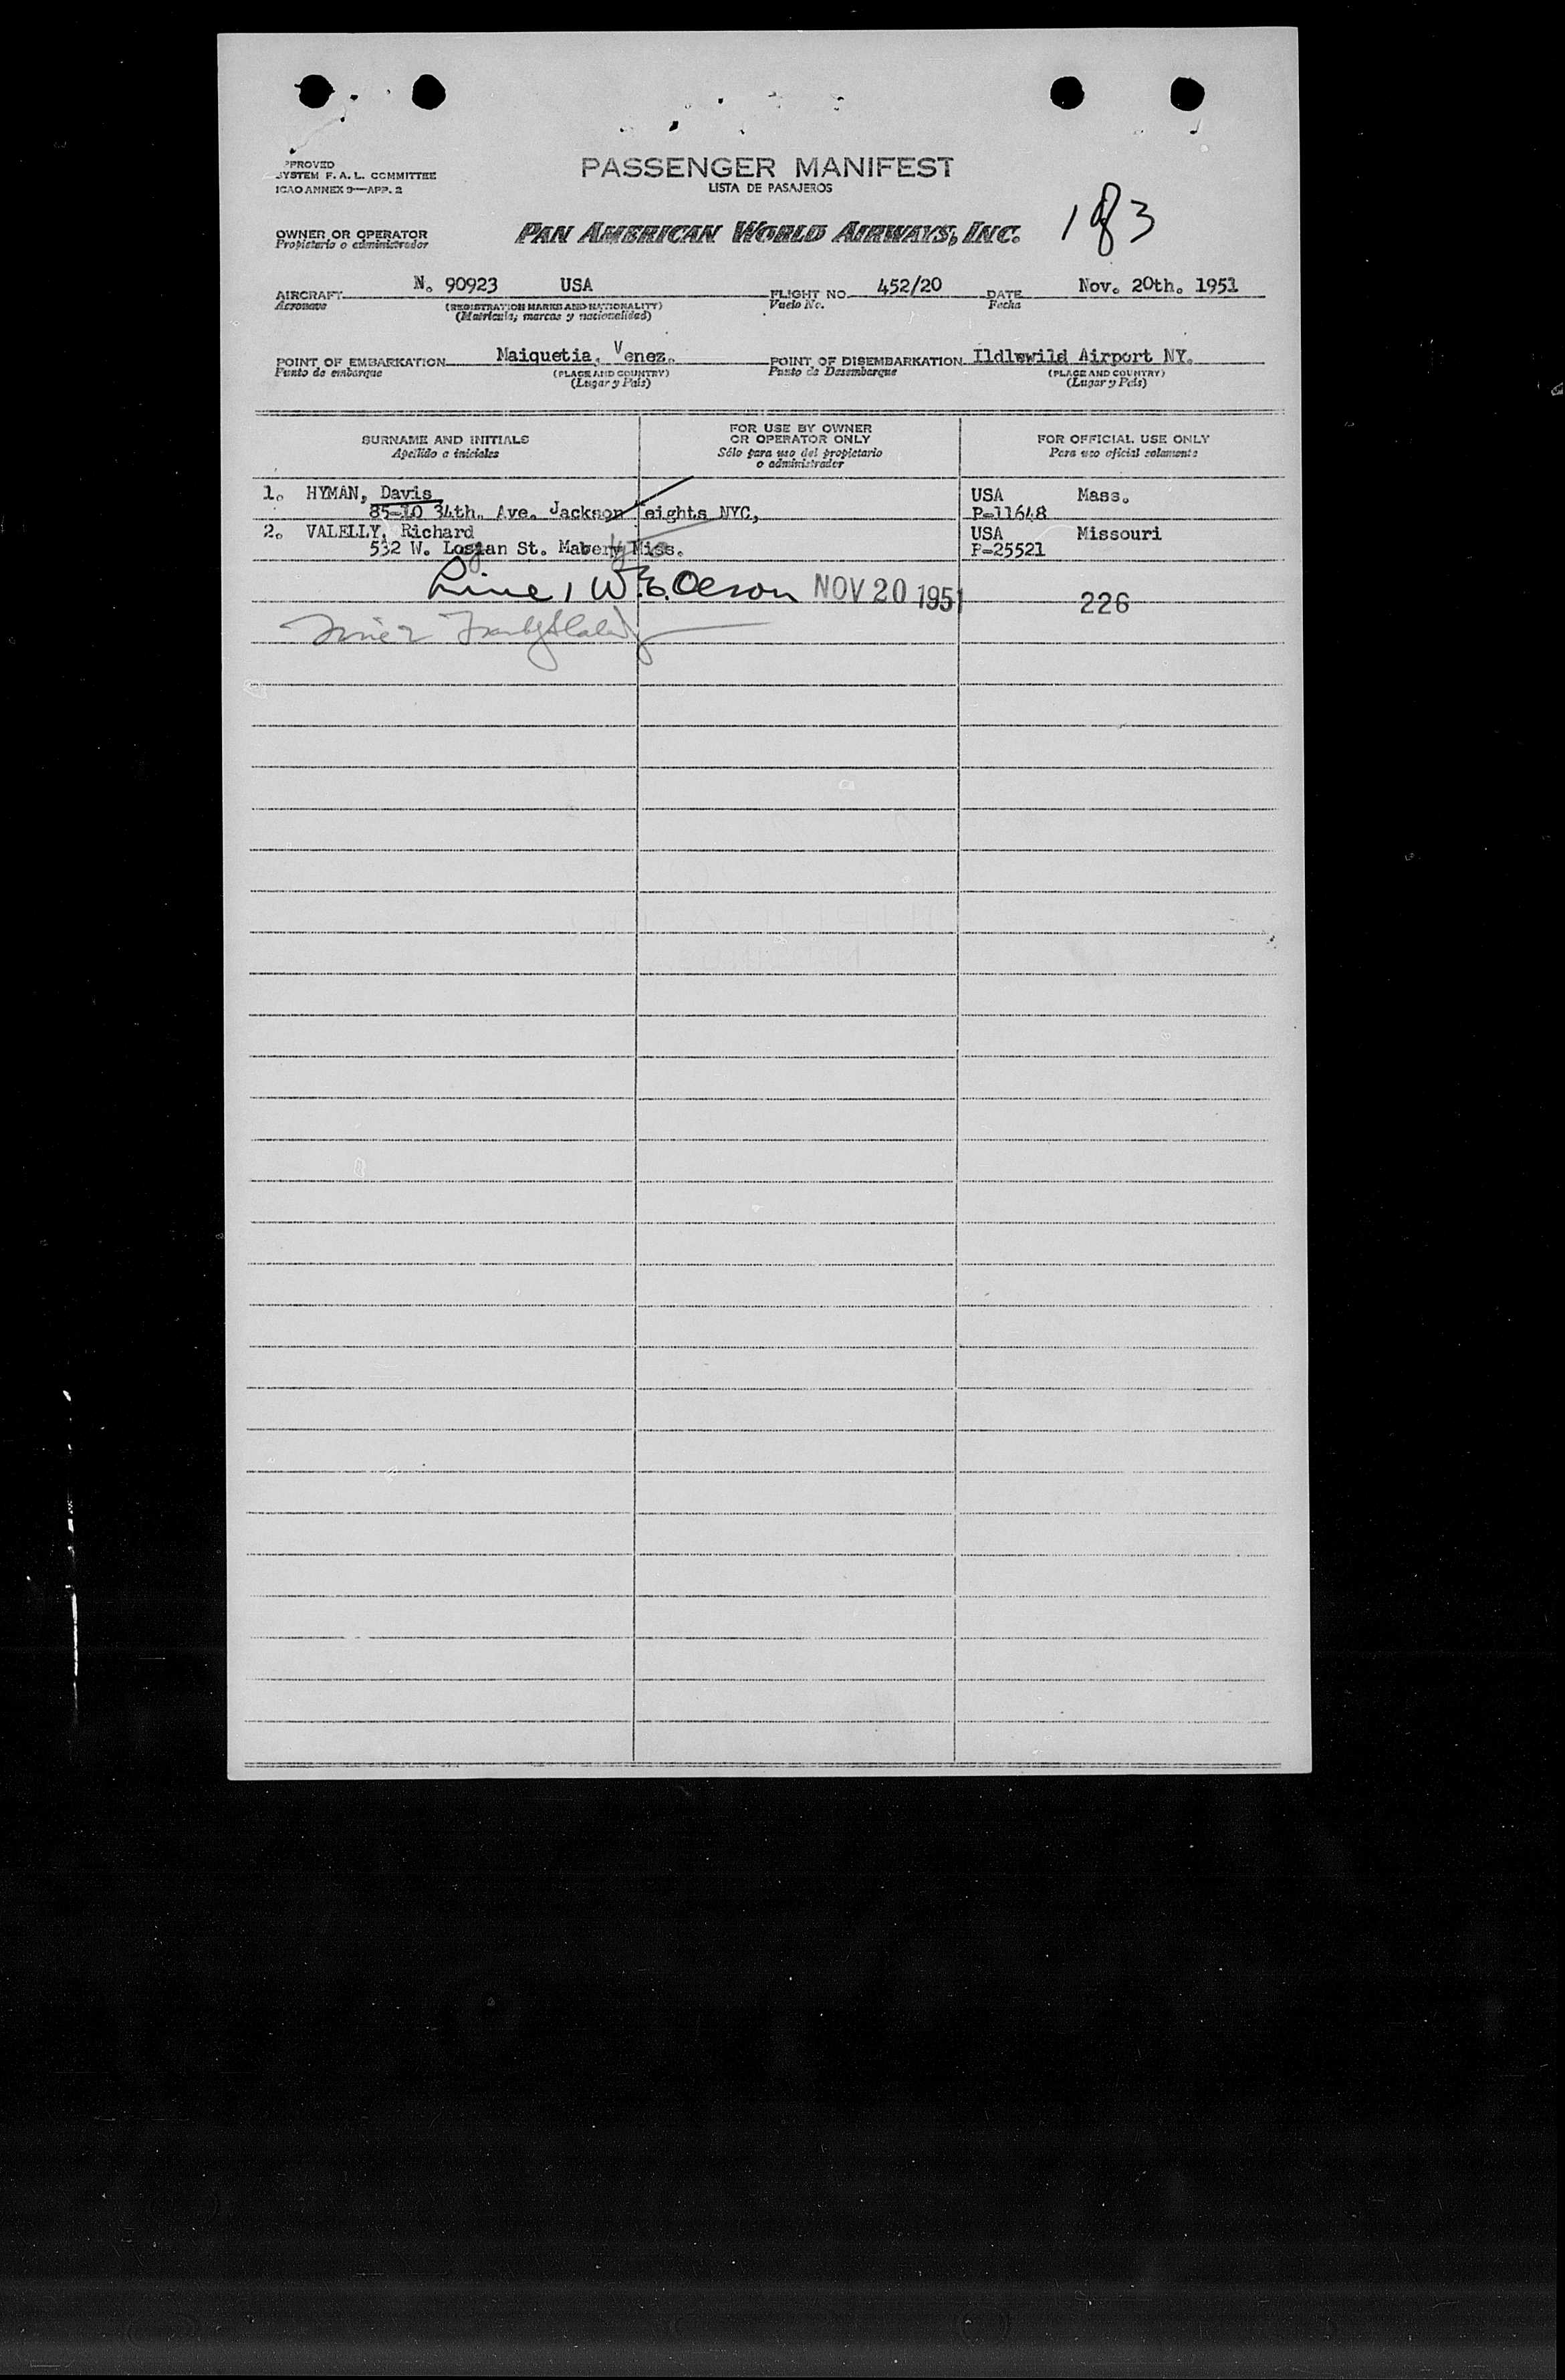 PPROVED
SYSTEM F. A. L. COMMITTEE
ICAO ANNEX 9—APP. 2
PASSENGER MANIFEST
LISTA DE PASAJEROS
183
OWNER OR OPERATOR
Propietario o administrador
PAN AMERICAN WORLD AIRWAYS, INC.
AIRCRAFT N. 90923 USA FLIGHT NO. 452/20 DATE Nov. 20th. 1951
Aeronave (REGISTRATION MARKS AND NATIONALITY) Vuelo No. Fecha
(Matricula, marcas y nacionalidad)
POINT OF EMBARKATION Maiquetia, Venez. POINT OF DISEMBARKATION Ildlewild Airport NY.
Punto de embarque (PLACE AND COUNTRY) Punto de Desembarque (PLACE AND COUNTRY)
(Lugar y País) (Lugar y País)
SURNAME AND INITIALS
Apellido e iniciales
FOR USE BY OWNER
OR OPERATOR ONLY
Sólo para uso del propietario
o administrador
FOR OFFICIAL USE ONLY
Para uso oficial solamente
1. HYMAN, Davis USA Mass.
85-10 34th. Ave. Jackson eights NYC, P-11648
2. VALELLY, Richard USA Missouri
532 W. St. Miss. P-25521
Line 1 W.E. Olson NOV 20 1951 226
Line 2